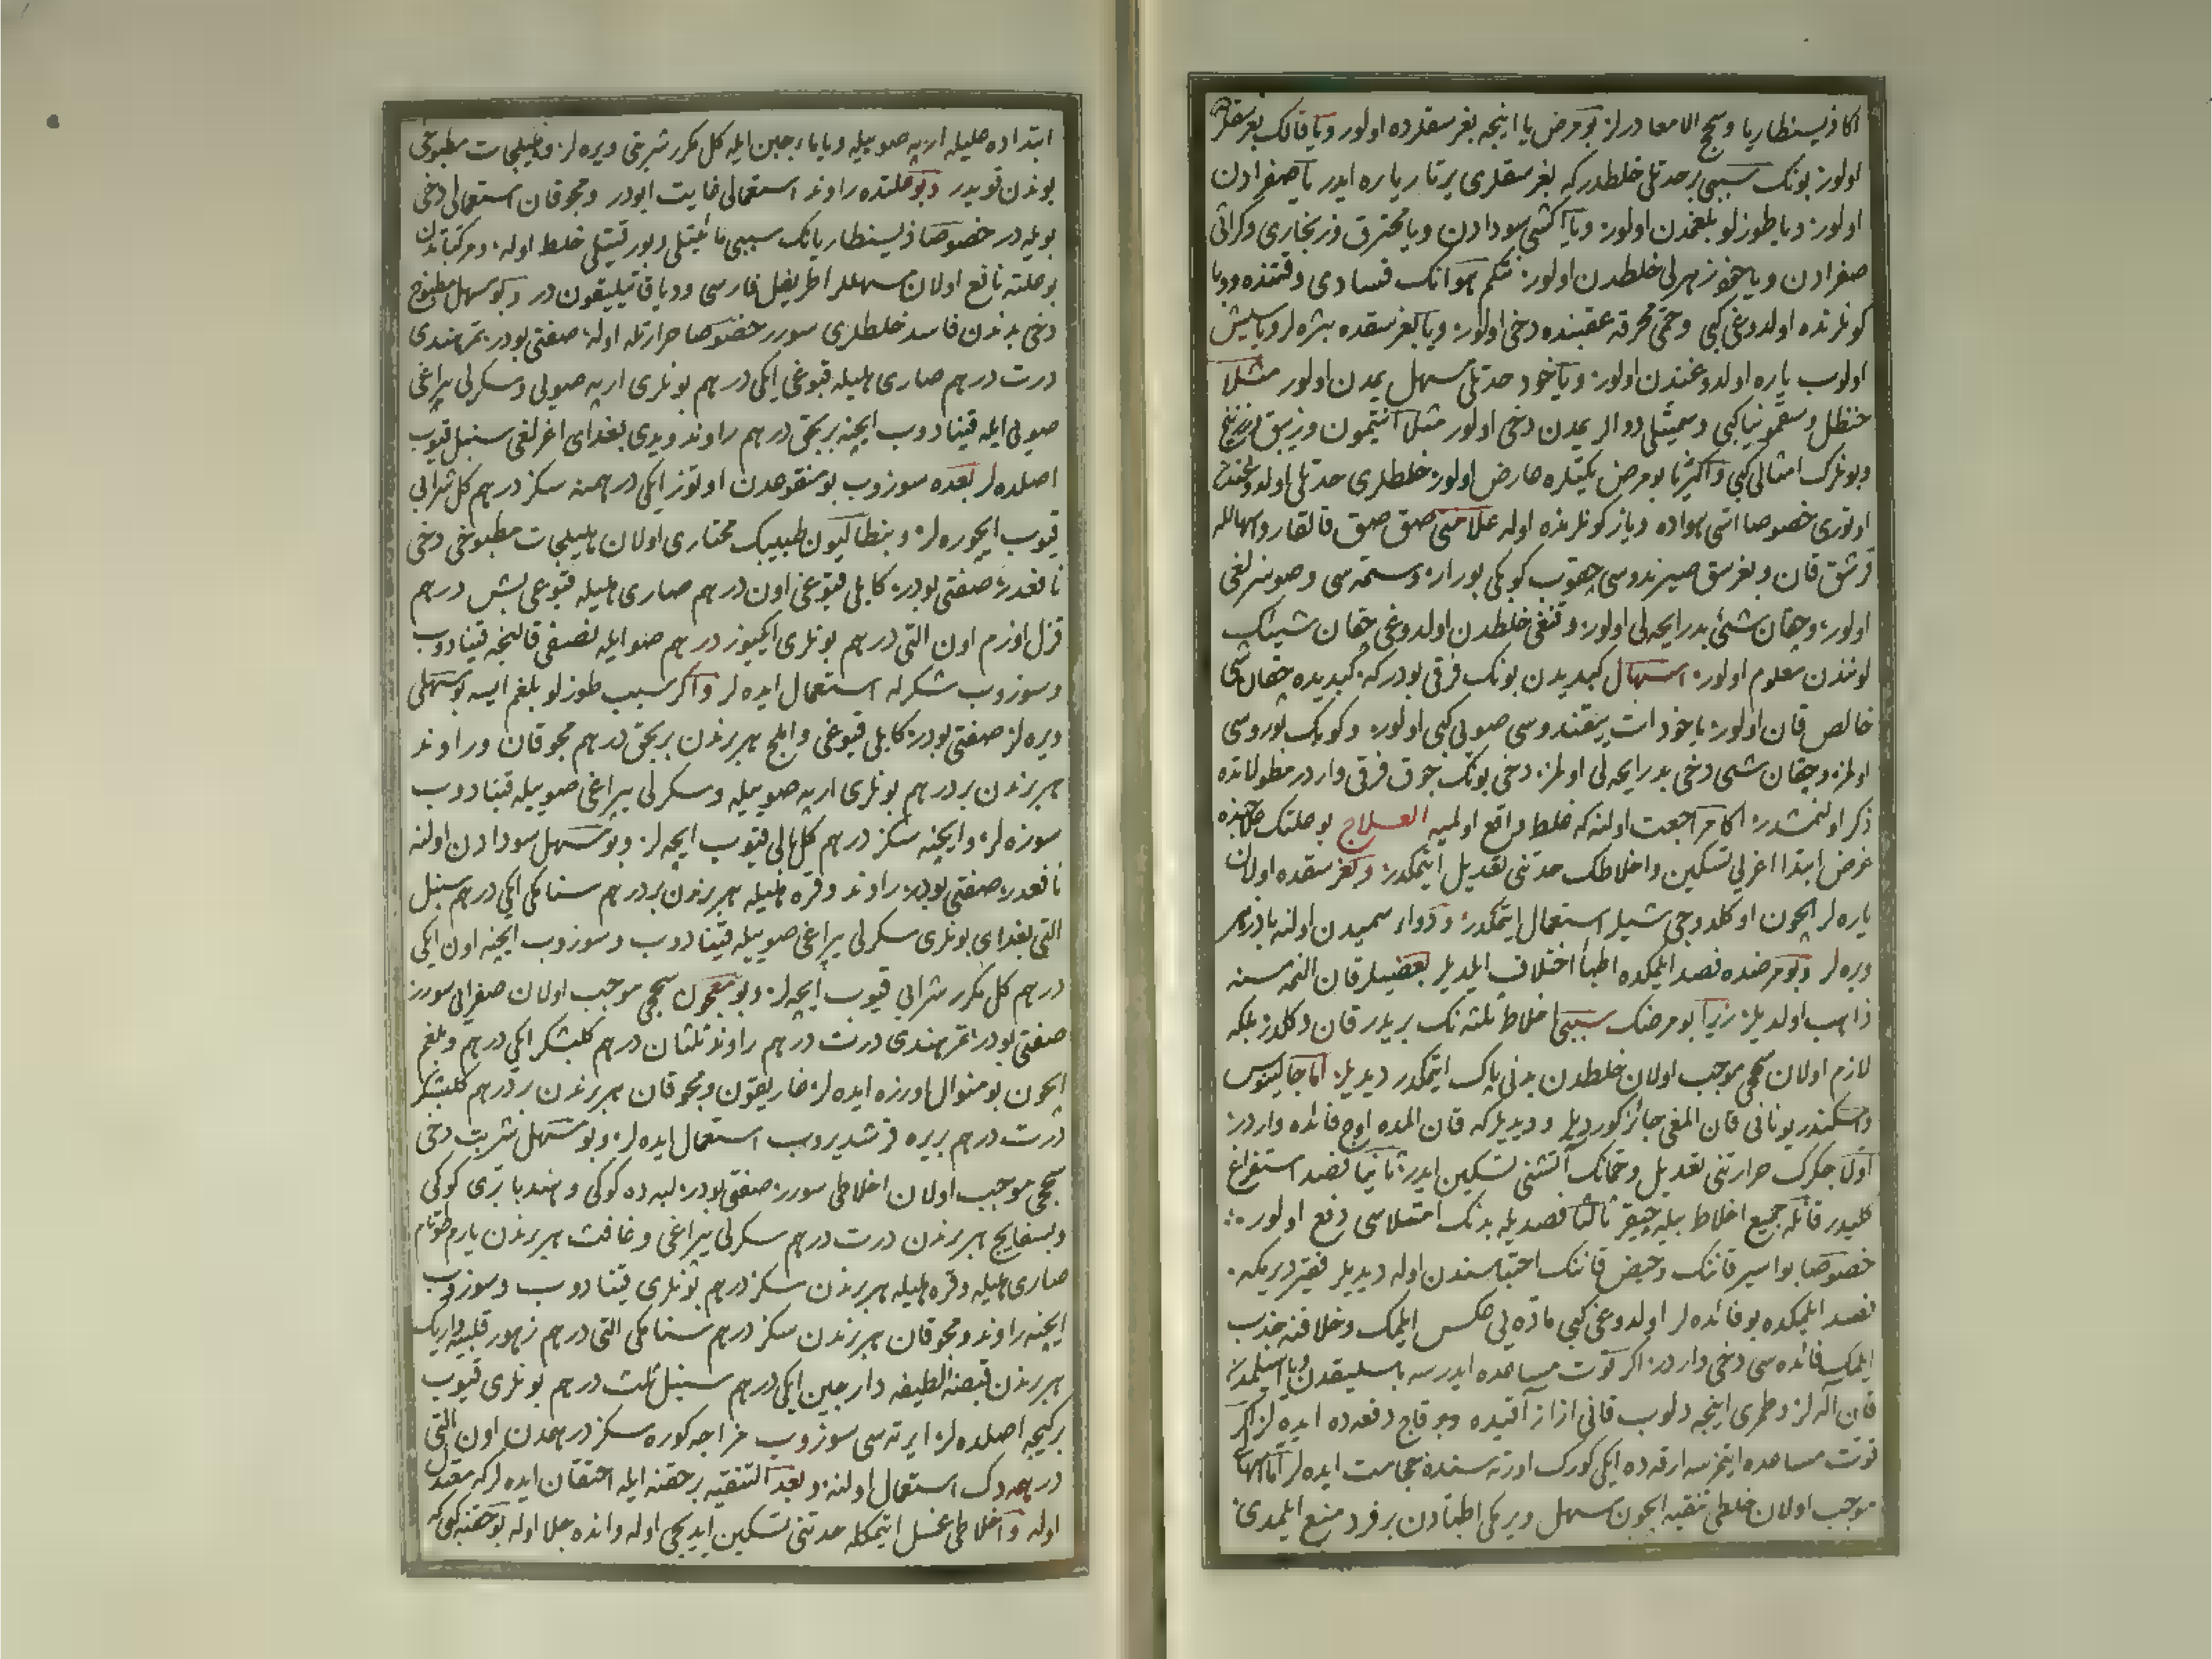 اكا ذيسنطاريا و سحج الامعا ديرلر بو مرض يا اينجه بغرسقلرده اولور و يا قالك بغرسقلرده
اولور بونك سببى بر حدتلى خلطدر كه بغرسقلرى يرتار ياره ايدر يا صفرادن
اولور و يا طوزلو بلغمدن اولور و يا اكشى سودادن و يا محترق و زنجارى و كراثى
صفرادن و يا خود زهرلى خلطدن اولور نتكم هوانك فسادى وقتنده و وبا
كونلرنده اولدوغى كبى و حمى محرقه عقبنده دخى اولور و يا بغرسقده بثره لر و يا شيش
اولوب ياره اولدوغندن اولور و يا خود حدتلى مسهل يمدن اولور مثلا
حنظل و سقمونيا كبى و سميتلى دوالر يمدن دخى اولور مثلا انتيمون و زيبق و زرنيخ
و بونلرك امثالى كبى و اكثريا بو مرض يكتلره عارض اولور خلطلرى حدتلى اولدوغندن
اوتورى خصوصا اسى هواده و ياز كونلرنده اوله علامتى صق صق قالقار و اسهالله
قرشق قان و بغرسق صيرندوسى چقوب كوبكى بورار و ستمه سى و صوسزلغى
اولور و چقان شئ بد رايحه لى اولور و قنغى خلطدن اولدوغى چقان شيئك
لونندن معلوم اولور اسهال كبديدن بونك فرقى بودركه كبديده چقان شى
خالص قان اولور ياخود ات ييقندوسى صويى كبى اولور و كوبك بوروسى
اولمز و چقان شى دخى بد رايحه لى اولمز دخى بونك چوق فرقى واردر مطولاتده
ذكر اولنمشدر اكا مراجعت اولنه كه غلط واقع اولميه العلاج بو علتك علاجنده
غرض ابتدا اغريى تسكين و اخلاطك حدتنى تعديل ايتمكدر و بغرسقده اولان
ياره لر ايچون اوكلدوجى شيلر استعمال ايتمكدر و دواء سميدن اولنه بادزهر
ويره لر و بو مرضده فصد ايلمكده اطبا اختلاف ايلديلر بعضيلر قان النمه مسنه
ذاهب اولديلر زيرا بو مرضك سببى اخلاط ثلثه نك بريدر قان دكلدر بلكه
لازم اولان سحجى موجب اولان خلطدن بدنى پاك ايتمكدر ديديلر اما جالينوس
و اسكندر يونانى قان المغى جائز كورديلر و ديديلر كه قان المده اوچ فائده واردر
اولا جكرك حرارتنى تعديل و حمانك آتشنى تسكين ايدر ثانيا فصد استفراغ
كليدر قانله جميع اخلاط بيله چيقر ثالثا فصديله بدنك امتلاسى دفع اولور
خصوصا بواسير قاننك و حيض قاننك احتباسندن اوله ديديلر فقير ديريمكه
فصد ايلمكده بو فائده لر اولدوغى كبى ماده يى عكس ايلمك و خلافنه جذب
ايلمك فائده سى دخى واردر اكر قوت مساعده ايدرسه باسليقدن و يا اسيلمدن
قان آله لر و طمرى اينجه دلوب قانى ازاز آقيده و بر قاچ دفعه ده ايده لر اكر
قوت مساعده ايتمزسه ارقه ده ايكى كورك اورته سنده حجامت ايده لر اما اسهالى
موجب اولان خلطى تنقيه ايچون مسهل ويرمكى اطبادن بر فرد منع ايلمدى
ابتداده هليله ارپه صوييله و يا ماء جبن ايله كل مكرر شربتى ويره لر و هليلجات مطبوخى
بوندن قويدر و بو علتده راوند استعمالى غايت ايودر و مجوقان استعمالى دخى
بويله در خصوصا ذيسنطاريانك سببى مائيتلى و بورقيتلى خلط اوله و مركباتدن
بو علته نافع اولان مسهللر اطريفل فارسى و ديا قاتيليقون در و بو مسهل مطبوخ
دخى بدندن فاسد خلطلرى سورر خصوصا حرارتله اوله صفتى بودر تمر هندى
درت درهم صارى هليله قبوغى ايكى درهم بونلرى ارپه صويى و سكرلى يپراغى
صويى ايله قينادوب ايچنه بر بچق درهم راوند و يدى بغداى اغرلغى سنبل قيوب
اصلده لر بعده سوزوب بو منقوعدن اوتوز ايكى درهمنه سكز درهم كل شرابى
قيوب ايچوره لر و بنطاليون طبيبك مختارى اولان هليلجات مطبوخى دخى
نافعدر صفتى بودر كابلى قبوغى اون درهم صارى هليله قبوغى بش درهم
قزل اوزم اون التى درهم بونلرى ايكيوز درهم صو ايله نصفى قالنجه قينادوب
و سوزوب شكرله استعمال ايده لر و اكر سبب طوزلو بلغم ايسه بو مسهلى
ويره لر صفتى بودر كابلى قبوغى و املج هر برندن بر بچق درهم مجوقان و راوند
هر برندن بر درهم بونلرى ارپه صوييله و سكرلى يپراغى صوييله قينادوب
سوزه لر و ايچنه سكز درهم كل بالى قيوب ايچه لر و بو مسهل سودادن اولنه
نافعدر صفتى بودر راوند و قره هليله هر برندن بر درهم سنامكى ايكى درهم سنبل
التى بغداى بونلرى سكرلى يپراغى صوييله قينادوب و سوزوب ايچنه اون ايكى
درهم كل مكرر شرابى قيوب ايچه لر و بو معجون سحجى موجب اولان صفرايى سورر
صفتى بودر تمر هندى درت درهم راوند ثلثان درهم كلبشكر ايكى درهم و بلغم
ايچون بو منوال اوزره ايده لر غاريقون و مجوقان هر برندن بر درهم كلبشكر
درت درهم بريره قرشديروب استعمال ايده لر و بو مسهل شربت دخى
سحجى موجب اولان اخلاطى سورر صفتى بودر لبه ده كوكى و هندبا برى كوكى
و بسفايج هر برندن درت درهم سكرلى يپراغى و غافث هر برندن يارم طوتام
صارى هليله و قره هليله هر برندن سكز درهم بونلرى قينادوب و سوزوب
ايچنه راوند و مجوقان هر برندن سكز درهم سنامكى التى درهم زهور قلبيه و اريك
هر برندن قبضه لطيفه دارچين ايكى درهم سنبل ثلث درهم بونلرى قيوب
بر كيجه اصلده لر ايرته سى سوزوب مزاجه كوره سكز درهمدن اون التى
درهمه دك استعمال اولنه و بعد التنقيه بر حقنه ايله احتقان ايده لر كه معتدل
اوله و اخلاطى غسل ايتمكله حدتنى تسكين ايديجى اوله و انده جلا اوله بو حقنه كبى كه